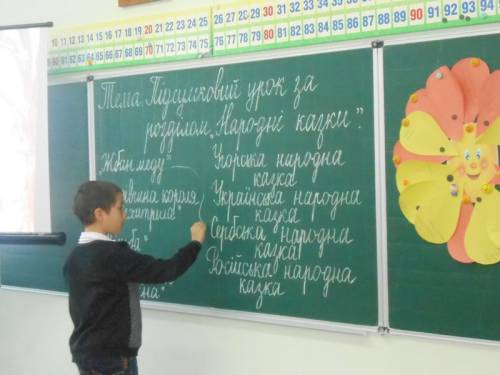 10 11 12 13 14 15 16 17 18 19 20 21 22 23 24 25 26 27 28 29 30 31 32 33 34 35 36 37 38 39 40 41 42 43
60 61 62 63 64 65 66 67 68 69 70 71 72 73 74 75 76 77 78 79 80 81 82 83 84 85 86 87 88 89 90 91 92 93
Тема. Підсумковий урок за
розділом „Народні казки".
Жбан меду" Угорська народна
казка
короля Українська народна
казка
Сербська народна
казка
Російська народна
казка